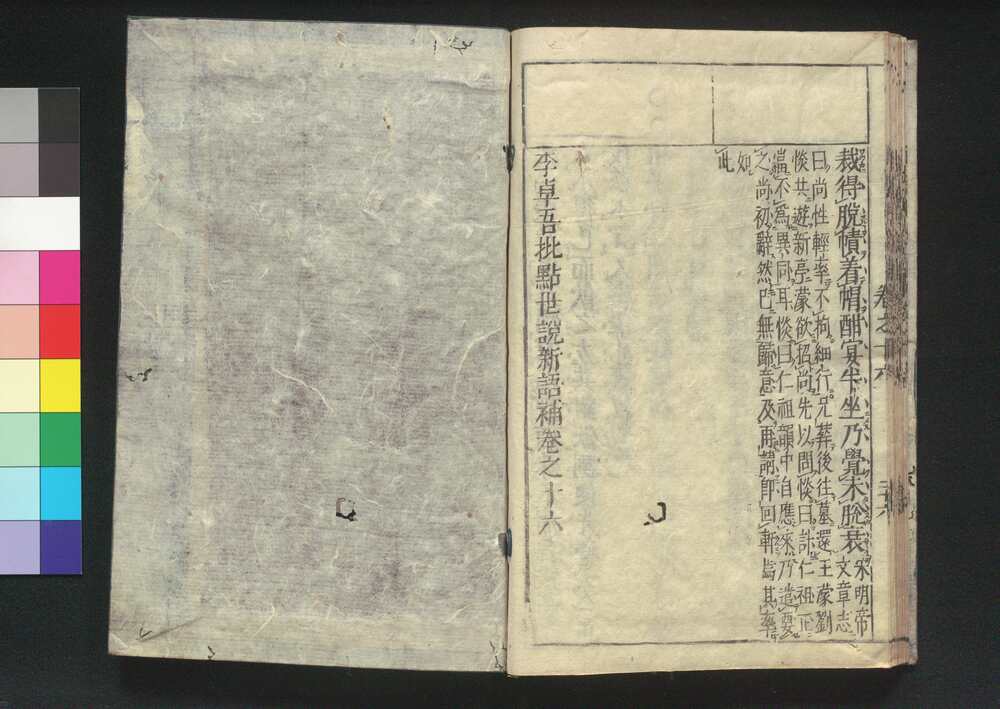 卷之十六
裁得脫幘着帽酣宴半坐乃覺未脫衰宋明帝
文章志
曰尚性輕率不拘細行兄葬後往墓還王蒙劉
惔共遊新亭蒙欲招尚先以問惔曰計仁祖正
當不為異同耳惔曰仁祖韻中自應來乃遣要
之尚初辭然已無歸意及再請即回軒焉其率
如此
李卓吾批點世說新語補卷之十六